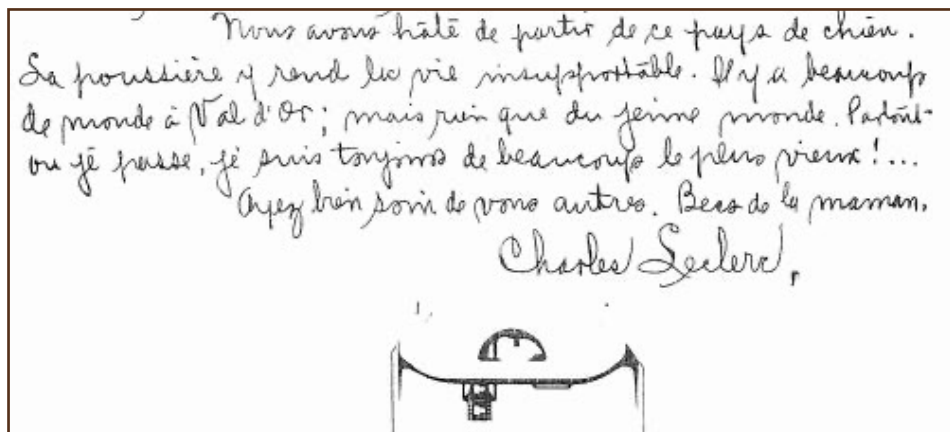 Nous avons hâte de partir de ce pays de chien.
La poussière y rend la vie insupportable. Il y a beaucoup
de monde à Val d'Or; mais rien que du jeune monde. Partout
ou je passe, je suis toujours de beaucoup le plus vieux!...
Ayez bien soin de vous autres. Becs de la maman.
Charles Leclerc,